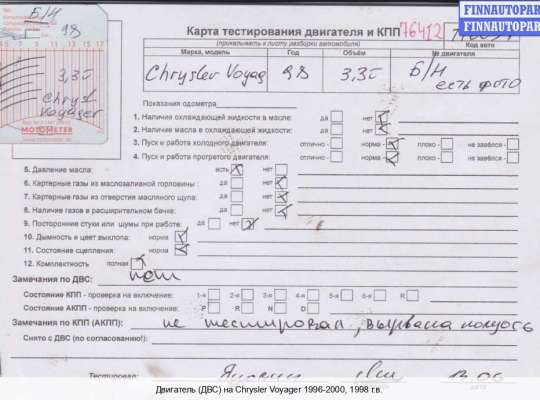 ФИННАВТОПАР
FINNAUTOPAR
Б/Н
98
5 7 9 11 13 15 17
3,3i
Chrysl
Voyager
MOTOMETER
Карта тестирования двигателя и КПП 76412
(прикалывать к листу разборки автомобиля)
Марка, модель Год Объём № двигателя Код авто
Chrysler Voyag 98 3,3i Б/Н
есть фото
Показания одометра
1. Наличие охлаждающей жидкости в масле: да нет
2. Наличие масла в охлаждающей жидкости: да нет
3. Пуск и работа холодного двигателя: отлично - норма - плохо - не завёлся -
4. Пуск и работа прогретого двигателя: отлично - норма - плохо - не завёлся -
5. Давление масла: есть нет
6. Картерные газы из маслозаливной горловины: да нет
7. Картерные газы из отверстия масляного щупа: да нет
8. Наличие газов в расширительном бачке: да нет
9. Посторонние стуки или шумы при работе: да нет
10. Дымность и цвет выхлопа: норма
11. Состояние сцепления: норма
12. Комплектность полная
Замечания по ДВС: нет
Состояние КПП - проверка на включение: 1-я 2-я 3-я 4-я 5-я 6-я R
Состояние АКПП - проверка на включение: P R N D
Замечания по КПП (АКПП): не тестирован, вырвана полуось
Снято с ДВС (по согласованию!):
Тестировал:
Двигатель (ДВС) на Chrysler Voyager 1996-2000, 1998 г.в.